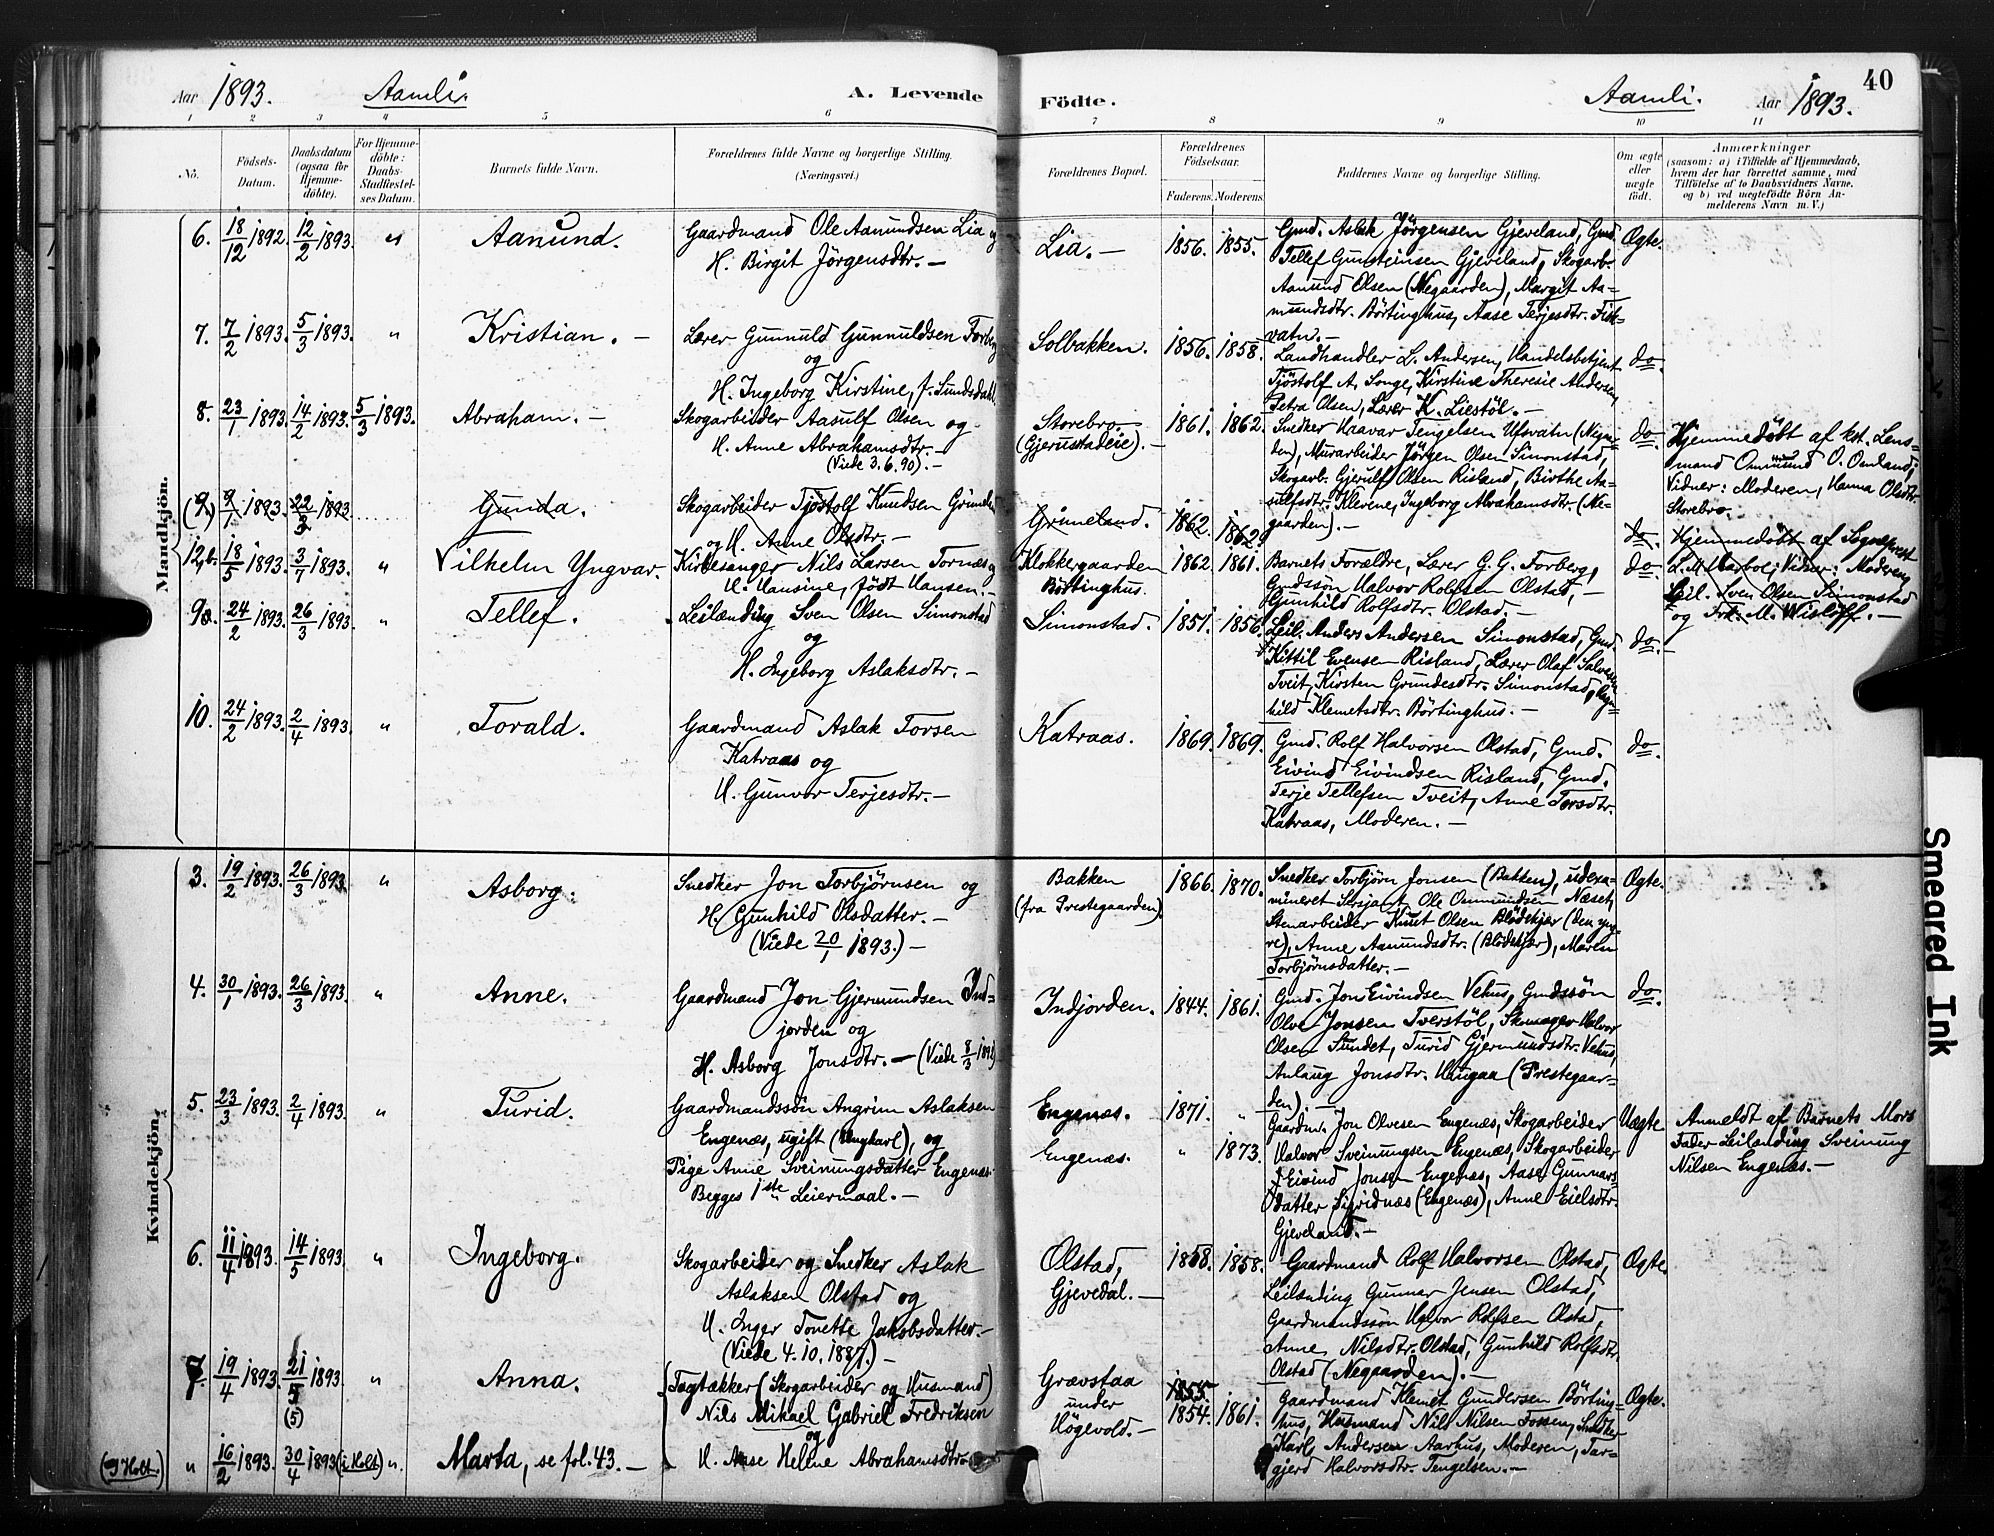 Aar 1893. Aamli. A. Levende Fødte. Aamli. Aar 1893. 40
1 2 3 4 5 6 7 8 9 10 11
No. Fødsels-Datum. Daabsdatum (ogsaa for Hjemmedøbte). For Hjemmedøbte: Daabs-Stadfæstelses Datum. Barnets fulde Navn. Forældrenes fulde Navne og borgerlige Stilling. (Næringsvei.) Forældrenes Bopæl. Forældrenes Fødselsaar. Faderens. Moderens. Faddernes Navne og borgerlige Stilling. Om ægte eller uægte født. Anmærkninger (saasom: a) i Tilfælde af Hjemmedaab, hvem der har forrettet samme, med Tilføielse af to Daabsvidners Navne, og b) ved uegtefødte Børn Anmelderens Navn m. V.)
Mandkjøn.
6. 18/12 1892. 12/2 1893. " Aanund. Gaardmand Ole Aanundsen Lia og
H. Birgit Jörgensdtr. —
Lia. — 1856. 1855.
Gmd. Aslak Jörgensen Gjeveland, Gmd.
Tellef Gunsteinsen Gjeveland, Skogarb.
Aanund Olsen (Negaarden), Margit Aa-
mundsdtr. Börtinghus, Aase Terjesdtr. Fisk-
vatn. —
Ægte.
7. 7/2 1893. 5/3 1893. " Kristian. — Lærer Gunnuld Gunnuldsen Forberg
og
H. Ingeborg Kirstine, f. Sundsdahl.
Solbakken. 1856. 1858.
Landhandler L. Andersen, Handelsbetjent
Tjöstolf A. Songe, Kirstine Theresie Andersen,
Petra Olsen, Lærer K. Liestöl. —
do.
8. 23/1 1893. 14/2 1893. 5/3 1893. Abraham. — Skogarbeider Aasulf Olsen og
H. Anne Abrahamsdtr. —
(Viede 3.6.90). —
Storebro
(Gjerustadeie). — 1861. 1862.
Snedker Haavar Tengelsen Ufsvatn (Negaar-
den), Murarbeider Jörgen Olsen Simonstad,
Skogarb. Gjerulf Olsen Risland, Birthe Aa-
sulfsdtr. Klevene, Ingeborg Abrahamsdtr. (Ne-
gaarden). —
do.
Hjemmedöbt af kst. Lens-
mand Omund O. Omland;
Vidner: Moderen, Hanna Olsdtr.
Storebro.
(9.) 9/1 1893. 22/3 1893. Gunda. Skogarbeider Tjöstolf Knudsen Grimeland
og H. Anne Olsdtr. —
Grimeland. 1862. 1862.
do.
Hjemmedöbt af Sogneprest
L. M. Harboe; Vidner: Moderen,
Leil. Sven Olsen Simonstad
og Frk. M. Wisloff. —
12,b. 18/5 1893. 3/7 1893. " Vilhelm Yngvar. Kirkesanger Nils Larsen Tornæs og
H. Hansine, födt Hansen. —
Klokkergaarden
Börtinghus. 1862. 1861.
Barnets Forældre, Lærer G. G. Forberg,
Gmdssön Halvor Rolfsen Olstad, —
Gunhild Rolfsdtr. Olstad. —
do.
9a. 24/2 1893. 26/3 1893. " Tellef. Leilænding Sven Olsen Simonstad
og
H. Ingeborg Aslaksdtr. —
Simonstad. 1851. 1856.
Leil. Anders Andersen Simonstad, Gmd.
Kittil Evensen Risland, Lærer Olaf Salvesen
Tveit, Kirsten Grundesdtr. Simonstad, Gun-
hild Klemetsdtr. Börtinghus. —
do. —
10. 24/2 1893. 2/4 1893. " Torald. Gaardmand Aslak Torsen
Katraas og
H. Gunvor Terjesdtr. —
Katraas. 1869. 1869.
Gmd. Rolf Halvorsen Olstad, Gmd.
Eivind Eivindsen Risland, Gmd.
Terje Tellefsen Tveit, Anne Torsdtr.
Katraas, Moderen. —
do.
Kvindekjön.
3. 19/2 1893. 26/3 1893. " Asborg. Snedker Jon Torbjörnsen og
H. Gunhild Olsdatter. —
(Viede 20/1 1893.) —
Bakken
(fra Prestegaarden). 1866. 1870.
Snedker Torbjörn Jonsen (Bakken), udexa-
mineret Sersjant Ole Ommundsen Næset,
Stenarbeider Knut Olsen Blödekjær (den yng-
re), Anne Aanundsdtr. (Blödekjær), Maren
Torbjörnsdatter. —
Ægte.
4. 30/1 1893. 26/3 1893. " Anne. Gaardmand Jon Gjermundsen Ind-
jorden og
H. Asborg Jonsdtr. — (Viede 8/3
Indjorden. 1844. 1861.
Gmd. Jon Eivindsen Vehus, Gmdssön
Olve Jonsen Tverstöl, Skomager Halvor
Olsen Sundet, Turid Gjermundsdtr. Vehus,
Anlaug Jonsdtr. Haugaa (Prestegaar-
den). —
do.
5. 23/3 1893. 2/4 1893. " Turid. Gaardmandssön Angrim Aslaksen
Engenæs, ugift (Ungkarl), og
Pige Anne Sveinungsdatter Engenæs.
Begges 1ste Leiermaal. —
Engenæs. 1871. "
Engenæs. " 1873.
Gaardm. Jon Olvesen Engenæs, Skogarbeider
Halvor Sveinungsen Engenæs, Skogarbeider
Eivind Jonsen Engenæs, Aase Gunnars-
datter Sigridnæs (Engenæs), Anne Eielsdtr.
Gjeveland. —
Uægte
Anmeldt af Barnets Mors
Fader Leilænding Sveinung
Nilsen Engenæs. —
6. 11/4 1893. 14/5 1893. " Ingeborg. Skogarbeider og Snedker Aslak
Aslaksen Olstad og
H. Inger Tonette Jakobsdatter. —
(Viede 4.10.1887.) —
Olstad,
Gjevedal. — 1858. 1858.
Gaardmand Rolf Halvorsen Olstad,
Leilænding Gunnar Jensen Olstad,
Gaardmandssön Halvor Rolfsen Olstad,
Anne Nilsdtr. Olstad, Gunhild Rolfsdtr.
Olstad (Negaarden). —
Ægte.
7. 19/4 1893. 21/5 (5) 1893. " Anna. Tagtækker (Skogarbeider og Husmand)
Nils Mikael Gabriel Fredriksen
og
H. Aase Helene Abrahamsdtr.
Grævstaa
under
Högevold. — 1855 1854. 1861.
Gaardmand Klemet Gundersen Börting-
hus, Husmand Nils Nilsen Fossen, Snedker
Karl Andersen Aarhus, Moderen, Tar-
gjerd Halvorsdtr. Tengelsen. —
Ægte.
(I Holt.) " 16/2 1893. 30/4 1893 (i Holt) ". Marta, se fol. 43. —
Smeared Ink